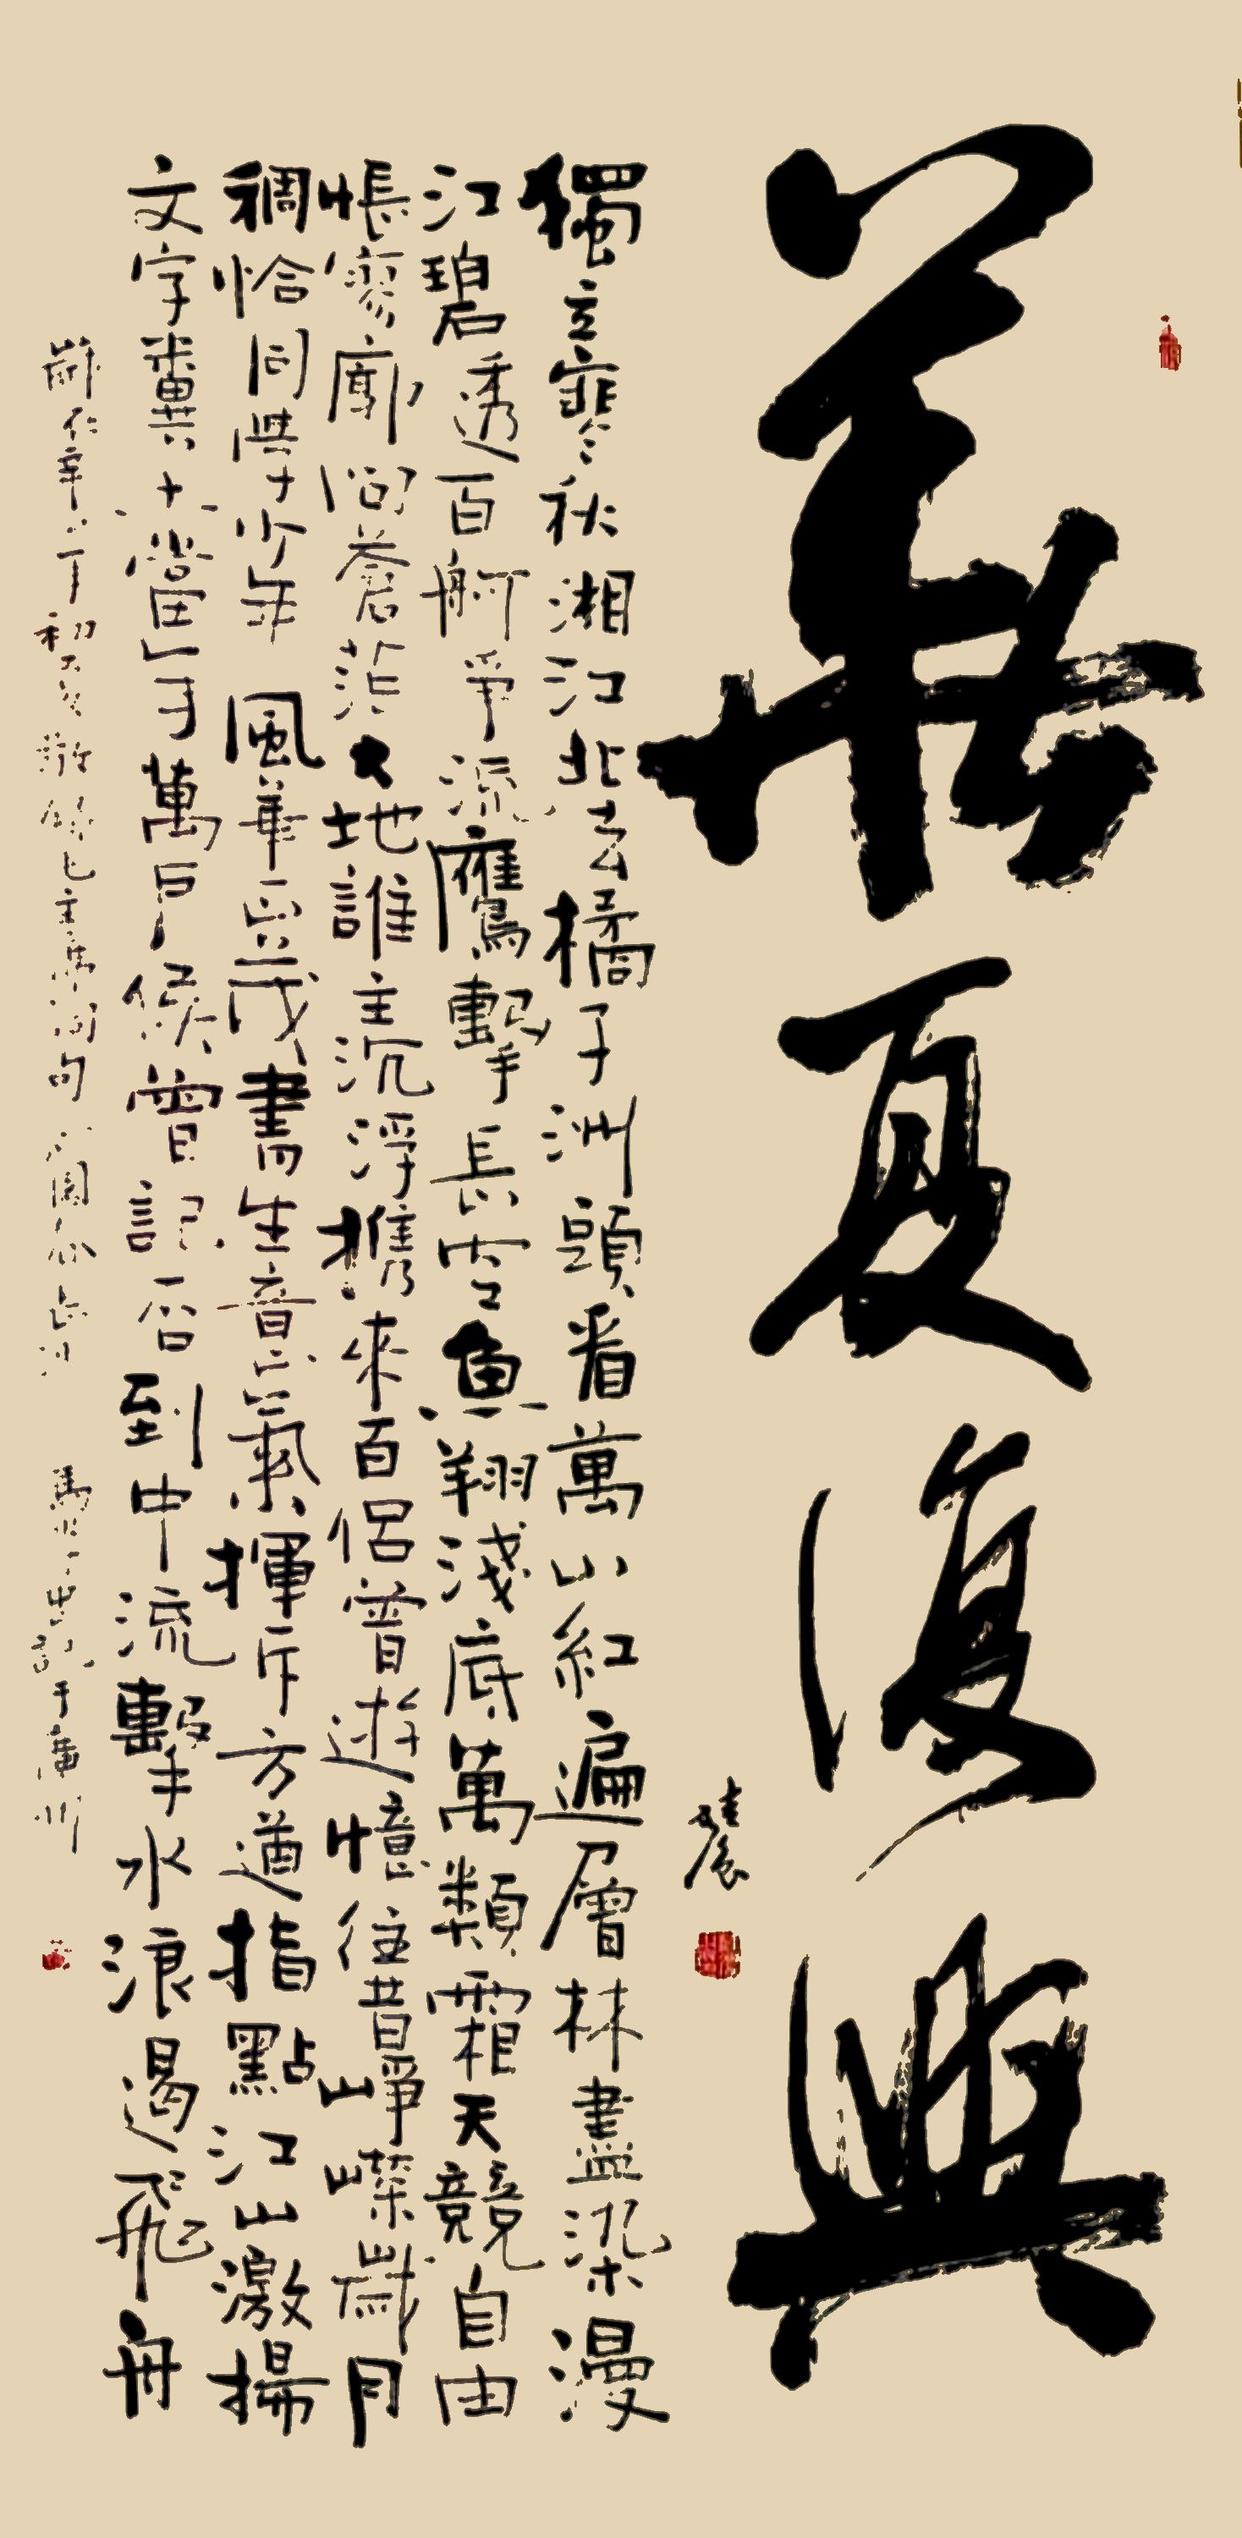 華夏復興
獨立寒秋湘江北去橘子洲頭看萬山紅遍層林盡染漫
江碧透百舸爭流鷹擊長空魚翔淺底萬類霜天競自由
悵寥廓問蒼茫大地誰主沉浮携來百侶曾遊憶往昔崢嶸歲月
稠恰同學少年風華正茂書生意氣揮斥方遒指點江山激揚
文字糞土當年萬戶侯曾記否到中流擊水浪遏飛舟
歲在辛初夏敬錄毛主席詞句于廣州